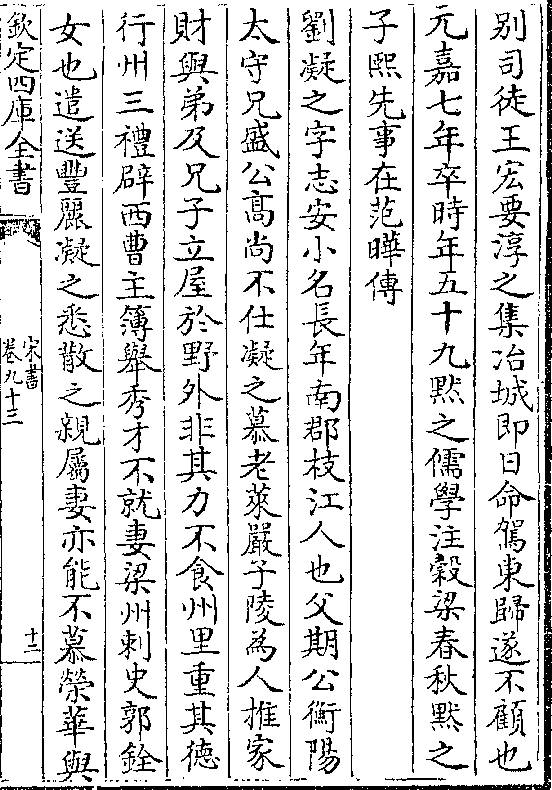 别司徒王宏要淳之集冶城即日命駕東歸遂不顧也
元嘉七年卒時年五十九黙之儒學注糓梁春秋黙之
子熙先事在范曄傳
劉凝之字志安小名長年南郡枝江人也父期公衡陽
太守兄盛公髙尚不仕凝之慕老萊嚴子陵為人推家
財與弟及兄子立屋於野外非其力不食州里重其德
行州三禮辟西曹主簿舉秀才不就妻梁州刺史郭銓
女也遣送豐麗凝之悉散之親屬妻亦能不慕榮華與
欽定四庫全書
宋書
卷九十三
十二